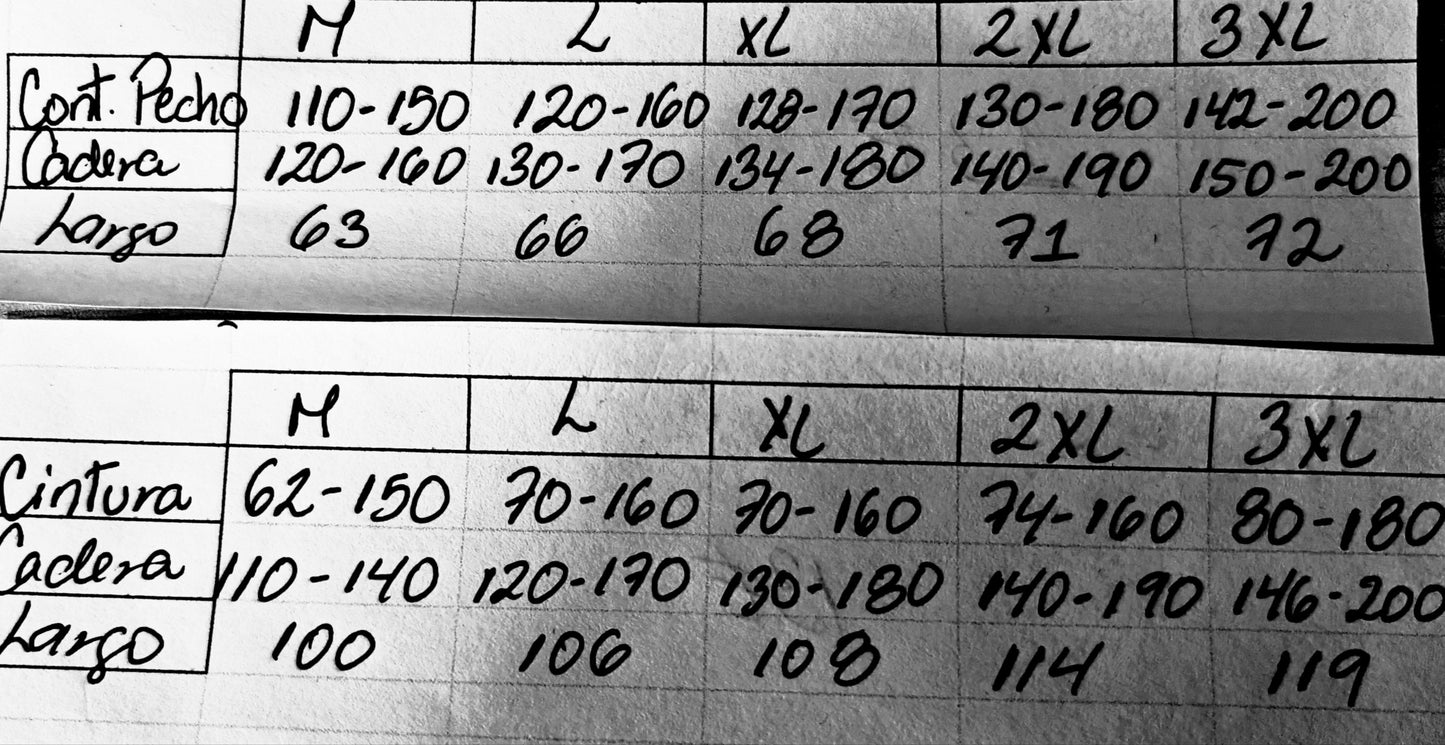 M L XL 2XL 3XL
Cont. Pecho 110-150 120-160 128-170 130-180 142-200
Cadera 120-160 130-170 134-180 140-190 150-200
Largo 63 66 68 71 72
M L XL 2XL 3XL
Cintura 62-150 70-160 70-160 74-160 80-180
Cadera 110-140 120-170 130-180 140-190 146-200
Largo 100 106 108 114 119